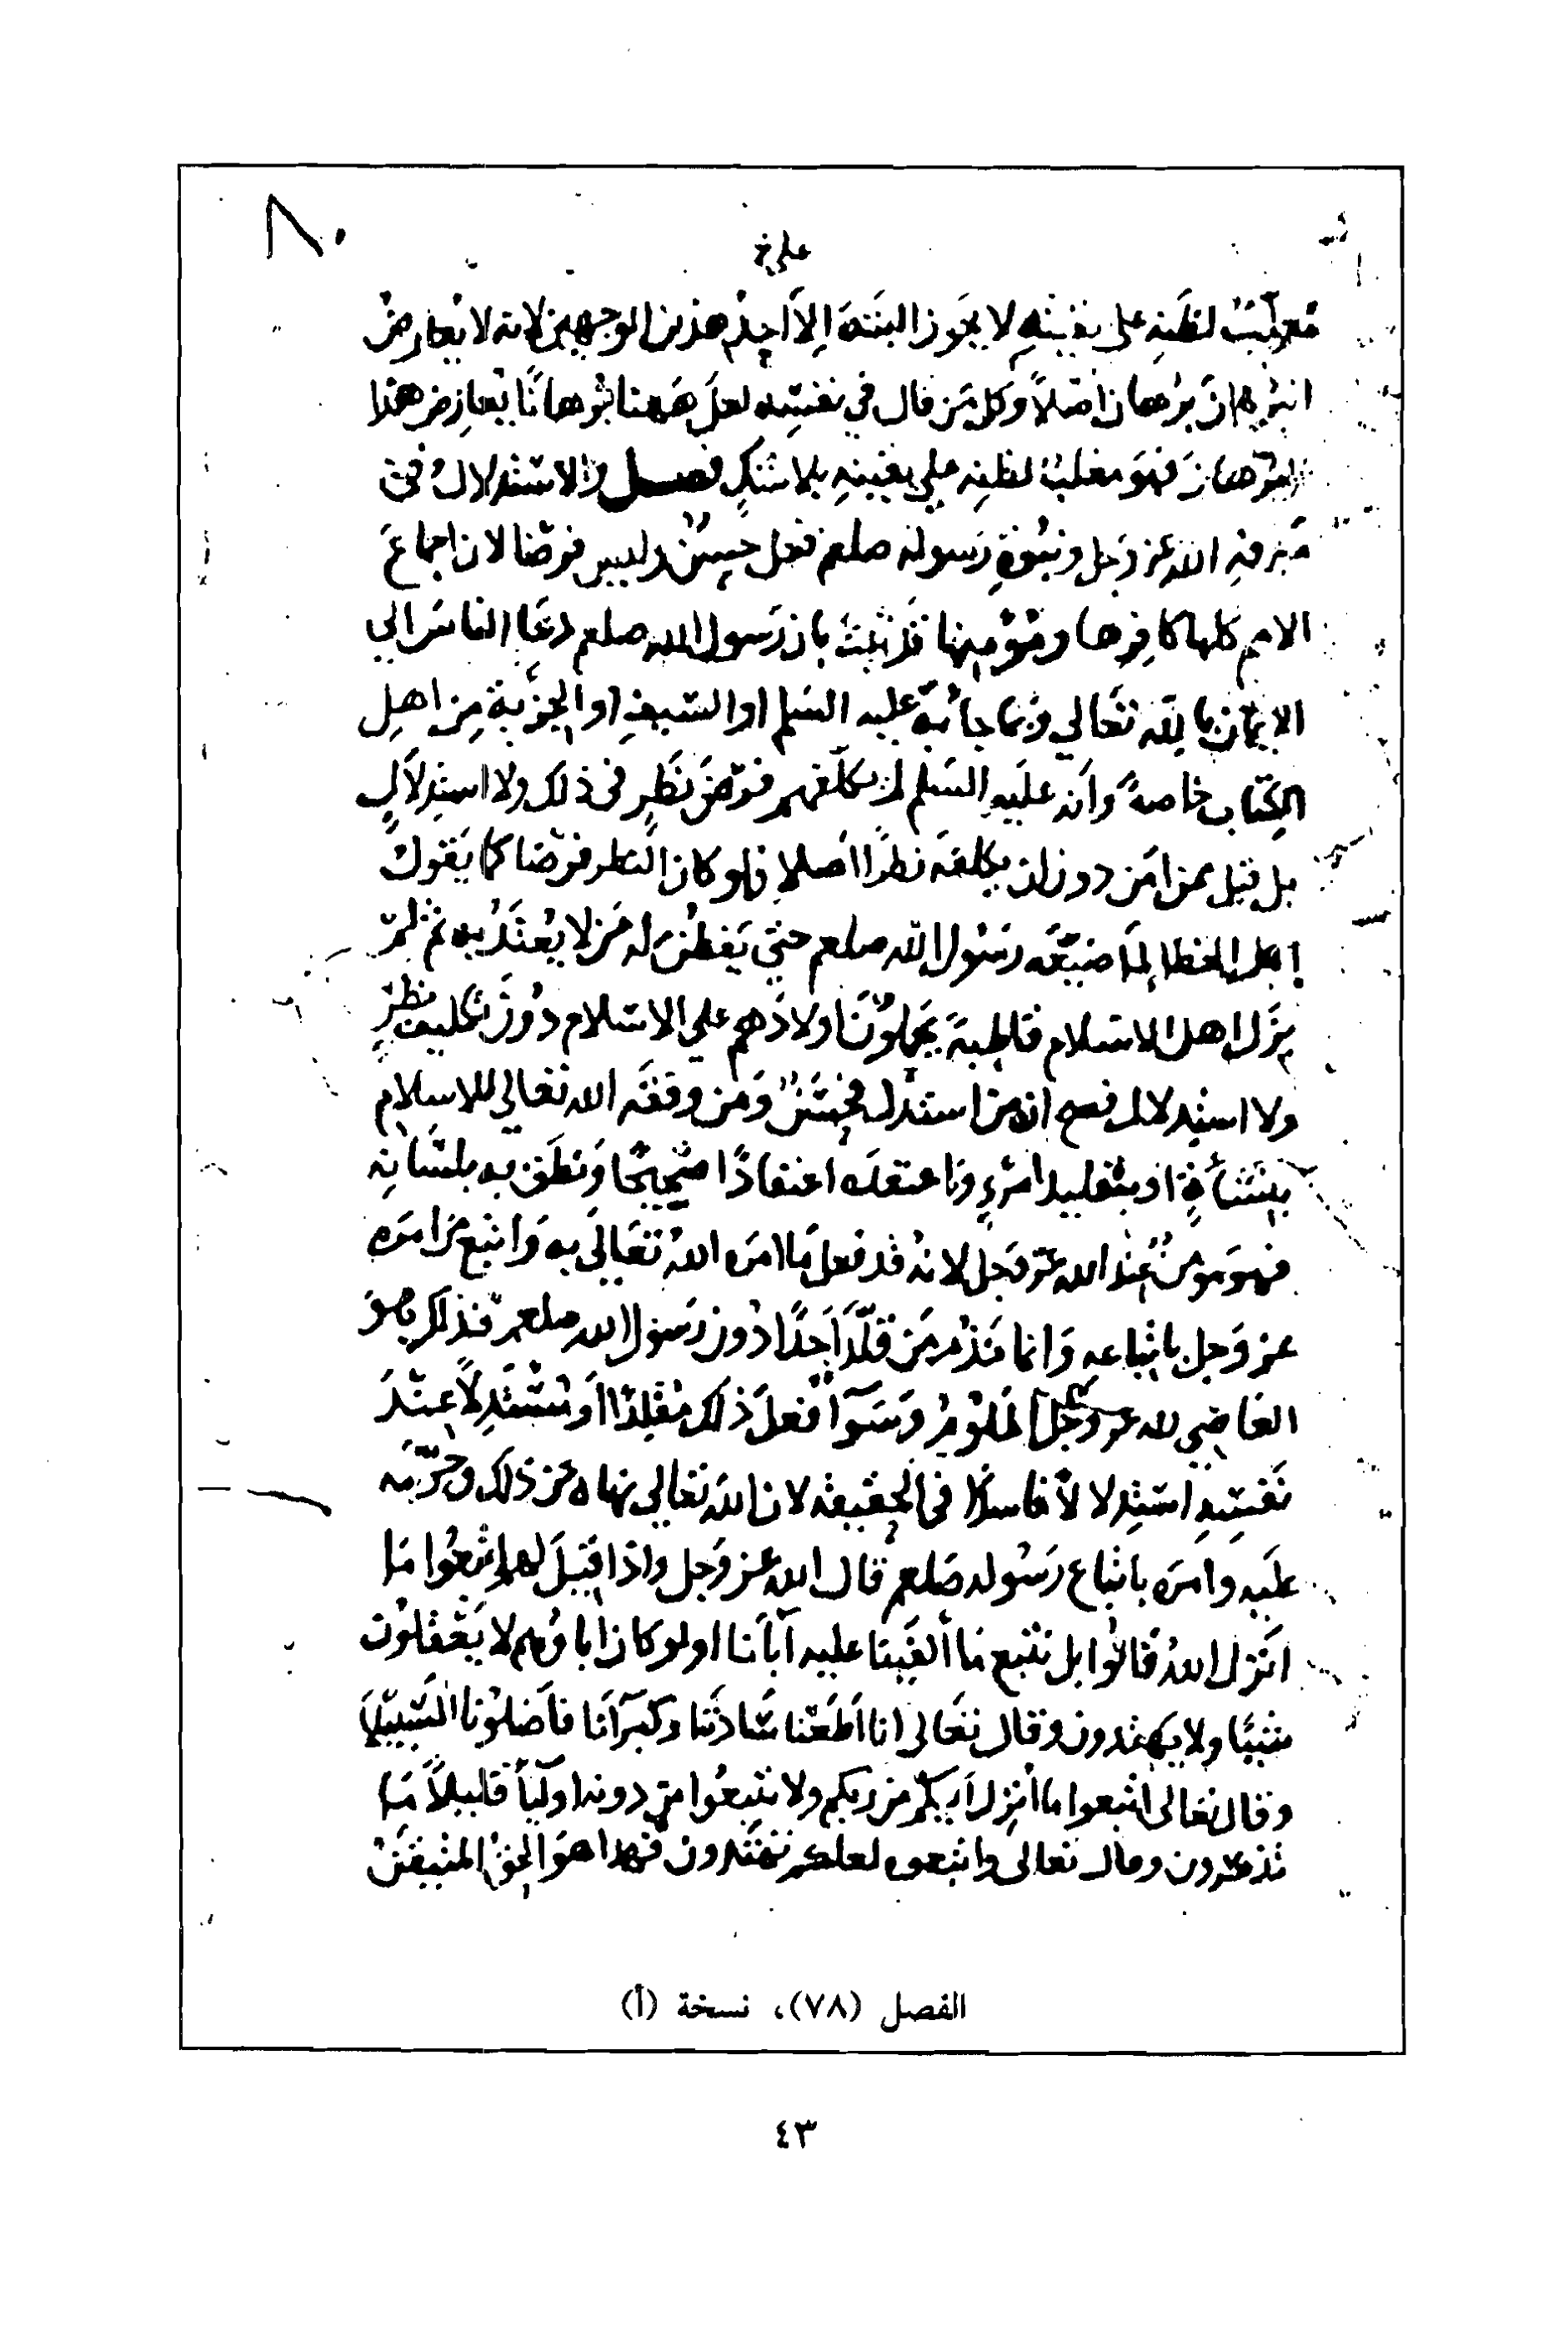 ٨٠
على خ
مغلب لظنه على يقينه لا يجوز البتة الا احد هذين الوجهين لانه لا يعارض
البرهان برهان اصلاً وكل من قال في نفسه لعل ههنا برهانًا يعارض هذا
البرهان فهو مغلب لظنه على يقينه بلا شك فصل والاستدلال في
معرفة الله عز وجل ونبوة رسوله صلعم فعل حسن وليس فرضا لان اجماع
الامم كلها كافرها ومؤمنها قد ثبت بان رسول الله صلعم دعا الناس الي
الايمان بالله تعالي وبما جا به عليه السلم او السيف او الجزية من اهل
الكتاب خاصة وانه عليه السلم لم يكلفهم فرض نظر في ذلك ولا استدلال
بل قبل ممن امن دون ان يكلفه نظرًا اصلا فلو كان النظر فرضا كما يقول
اهل الخطا لما ضيعه رسول الله صلعم حتي يفطن له من لا يعتد به ثم لم
يزل اهل الاسلام قاطبة يحملون اولادهم علي الاسلام دون تكليف نظر
ولا استدلال فصح ان من استدل فحسن ومن وفقه الله تعالي للاسلام
بنشأة او بتقليد امرء واعتقده اعتقادًا صحيحًا ونطق به بلسانه
فهو مومن عند الله عز وجل لانه قد فعل ما امره الله تعالي به واتبع من امره
عز وجل باتباعه وانما نذم من قلد احدًا دون رسول الله صلعم فذلك هو
العاصي لله عز وجل الملوم وسوآ فعل ذلك مقلدًا او مستدلا عند
نفسه استدلالاً فاسدًا في الحقيقة لان الله تعالي نهاه عن ذلك وحرمه
عليه وامره باتباع رسوله صلعم قال الله عز وجل واذا قيل لهم اتبعوا ما
انزل الله قالوا بل نتبع ما ألفينا عليه آبآنا اولو كان اباؤهم لا يعقلون
شيئًا ولا يهتدون وقال تعالى انا اطعنا سادتنا وكبرآنا فأضلونا السبيلا
وقال تعالى اتبعوا ما أنزل اليكم من ربكم ولا تتبعوا من دونه اوليآ قليلاً ما
تذكرون وقال تعالى واتبعوه لعلكم تهتدون فهذا هو الحق المتيقن
الفصل (٧٨)، نسخة (أ)
٤٣